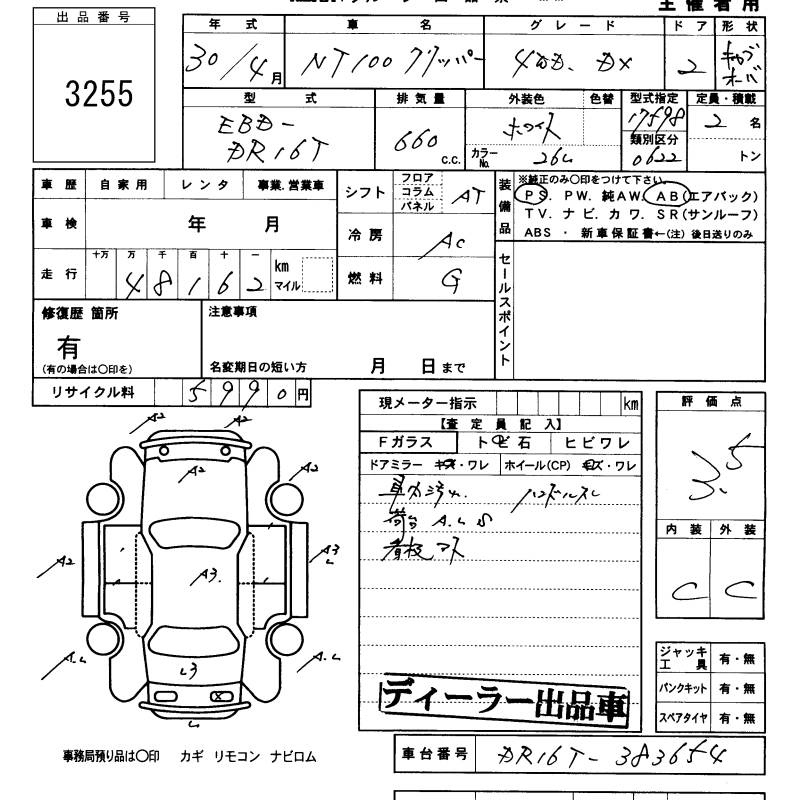 主催者用
出品番号
3255
年式 車名 グレード ドア 形状
30/4月 NT100クリッパー 4WD. DX 2 キャブオーバ
型式 排気量 外装色 色替 型式指定 定員・積載
EBD-DR16T 660 C.C. ホワイト 17598 2名
カラーNo. 26U 類別区分 0622 トン
車歴 自家用 レンタ 事業.営業車
車検 年 月
走行 十万 万 千 百 十 一
48162 km マイル
シフト フロア コラム パネル AT
冷房 AC
燃料 G
装備品
※純正のみ〇印をつけて下さい。
PS. PW. 純AW. AB(エアバック)
TV. ナビ. カワ. SR(サンルーフ)
ABS ・ 新車保証書←(注) 後日送りのみ
セールスポイント
修復歴 箇所
有
(有の場合は〇印を)
注意事項
名変期日の短い方 月 日まで
リサイクル料 5990円
現メーター指示 km
【査定員記入】
Fガラス トビ石 ヒビワレ
ドアミラー キズ・ワレ ホイール(CP) キズ・ワレ
車内汚れ ハンドルスレ
荷台 A.L S
看板アト
評価点
3.5
内装 外装
C C
A2 A2
A2
A2 A2
A2 A3 L
A3.
A.L A.L
L3
X
L
ジャッキ工具 有・無
パンクキット 有・無
スペアタイヤ 有・無
ディーラー出品車
事務局預り品は〇印 カギ リモコン ナビロム
車台番号 DR16T-383654